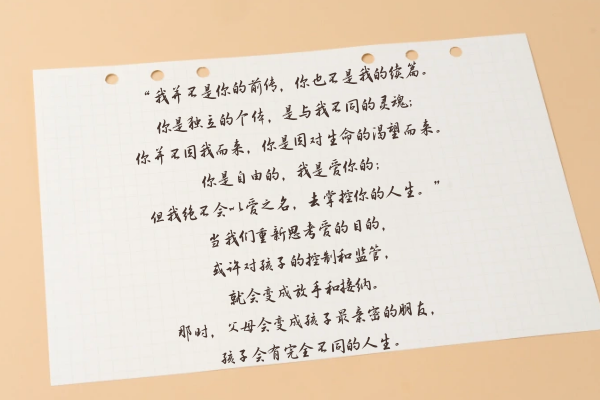 “我并不是你的前传，你也不是我的续篇。
你是独立的个体，是与我不同的灵魂；
你并不因我而来，你是因对生命的渴望而来。
你是自由的，我是爱你的；
但我绝不会以爱之名，去掌控你的人生。”
当我们重新思考爱的目的，
或许对孩子的控制和监管，
就会变成放手和接纳。
那时，父母会变成孩子最亲密的朋友，
孩子会有完全不同的人生。